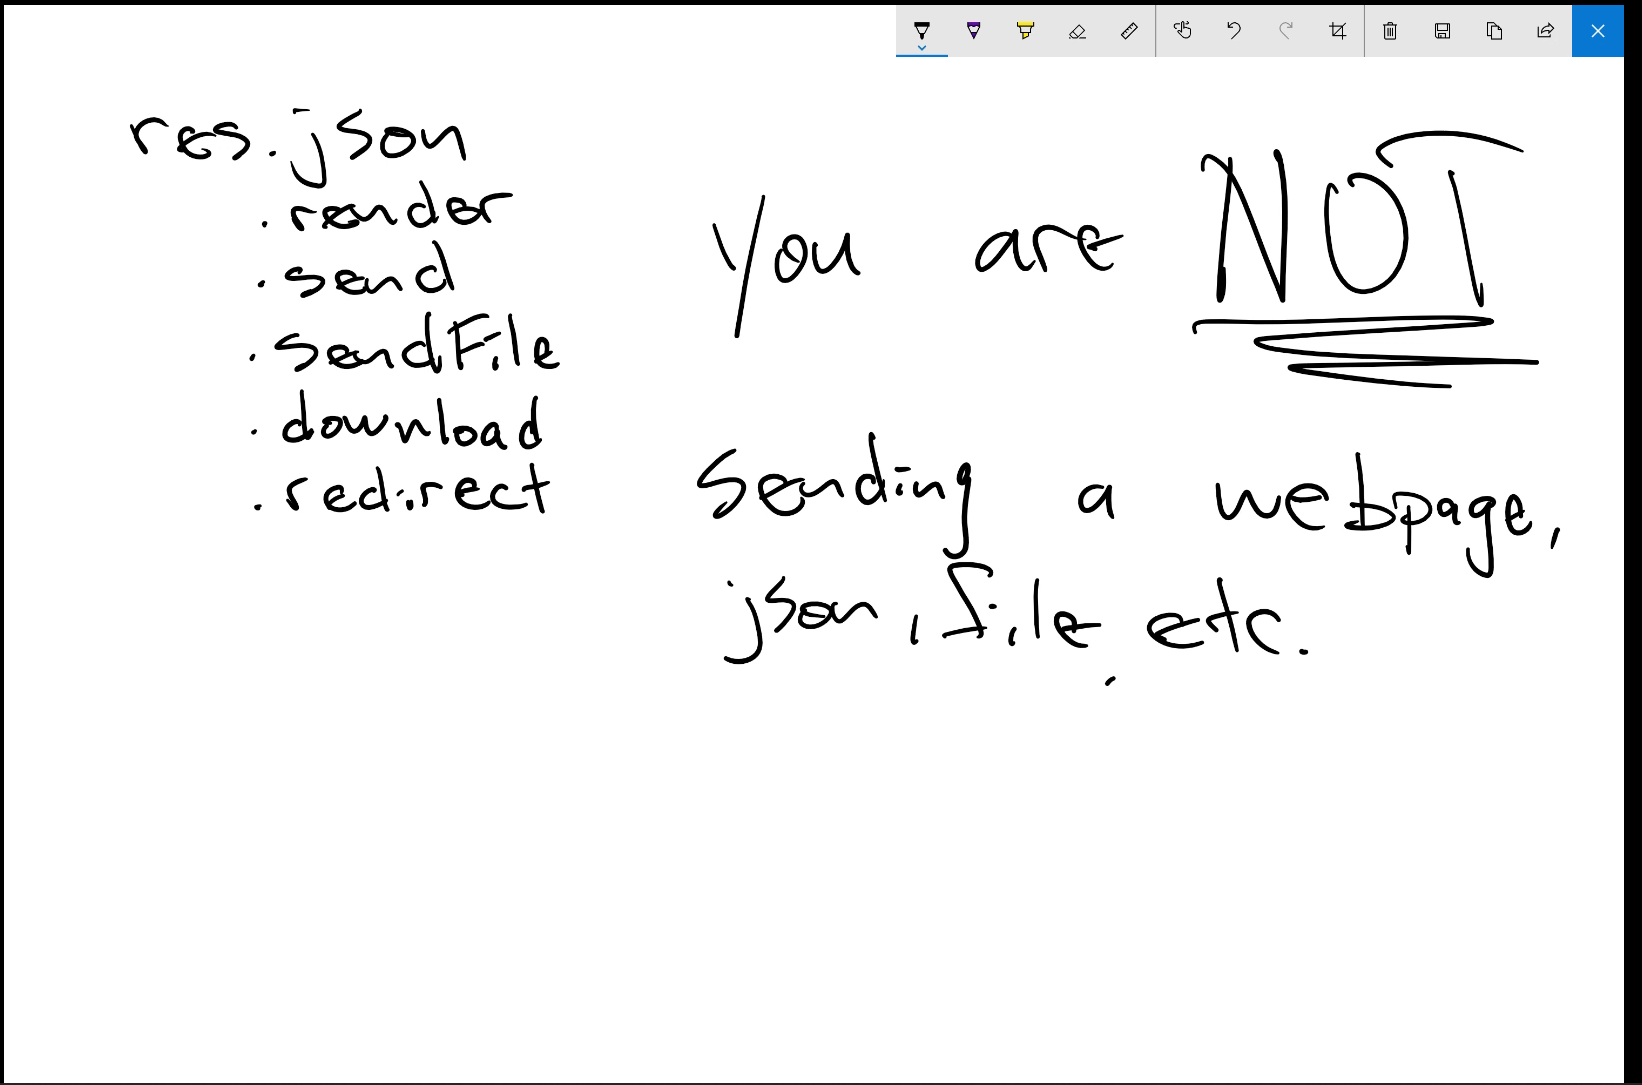 res.json
.render
.send
.sendFile
.download
.redirect
You are NOT
sending a webpage,
json, file, etc.